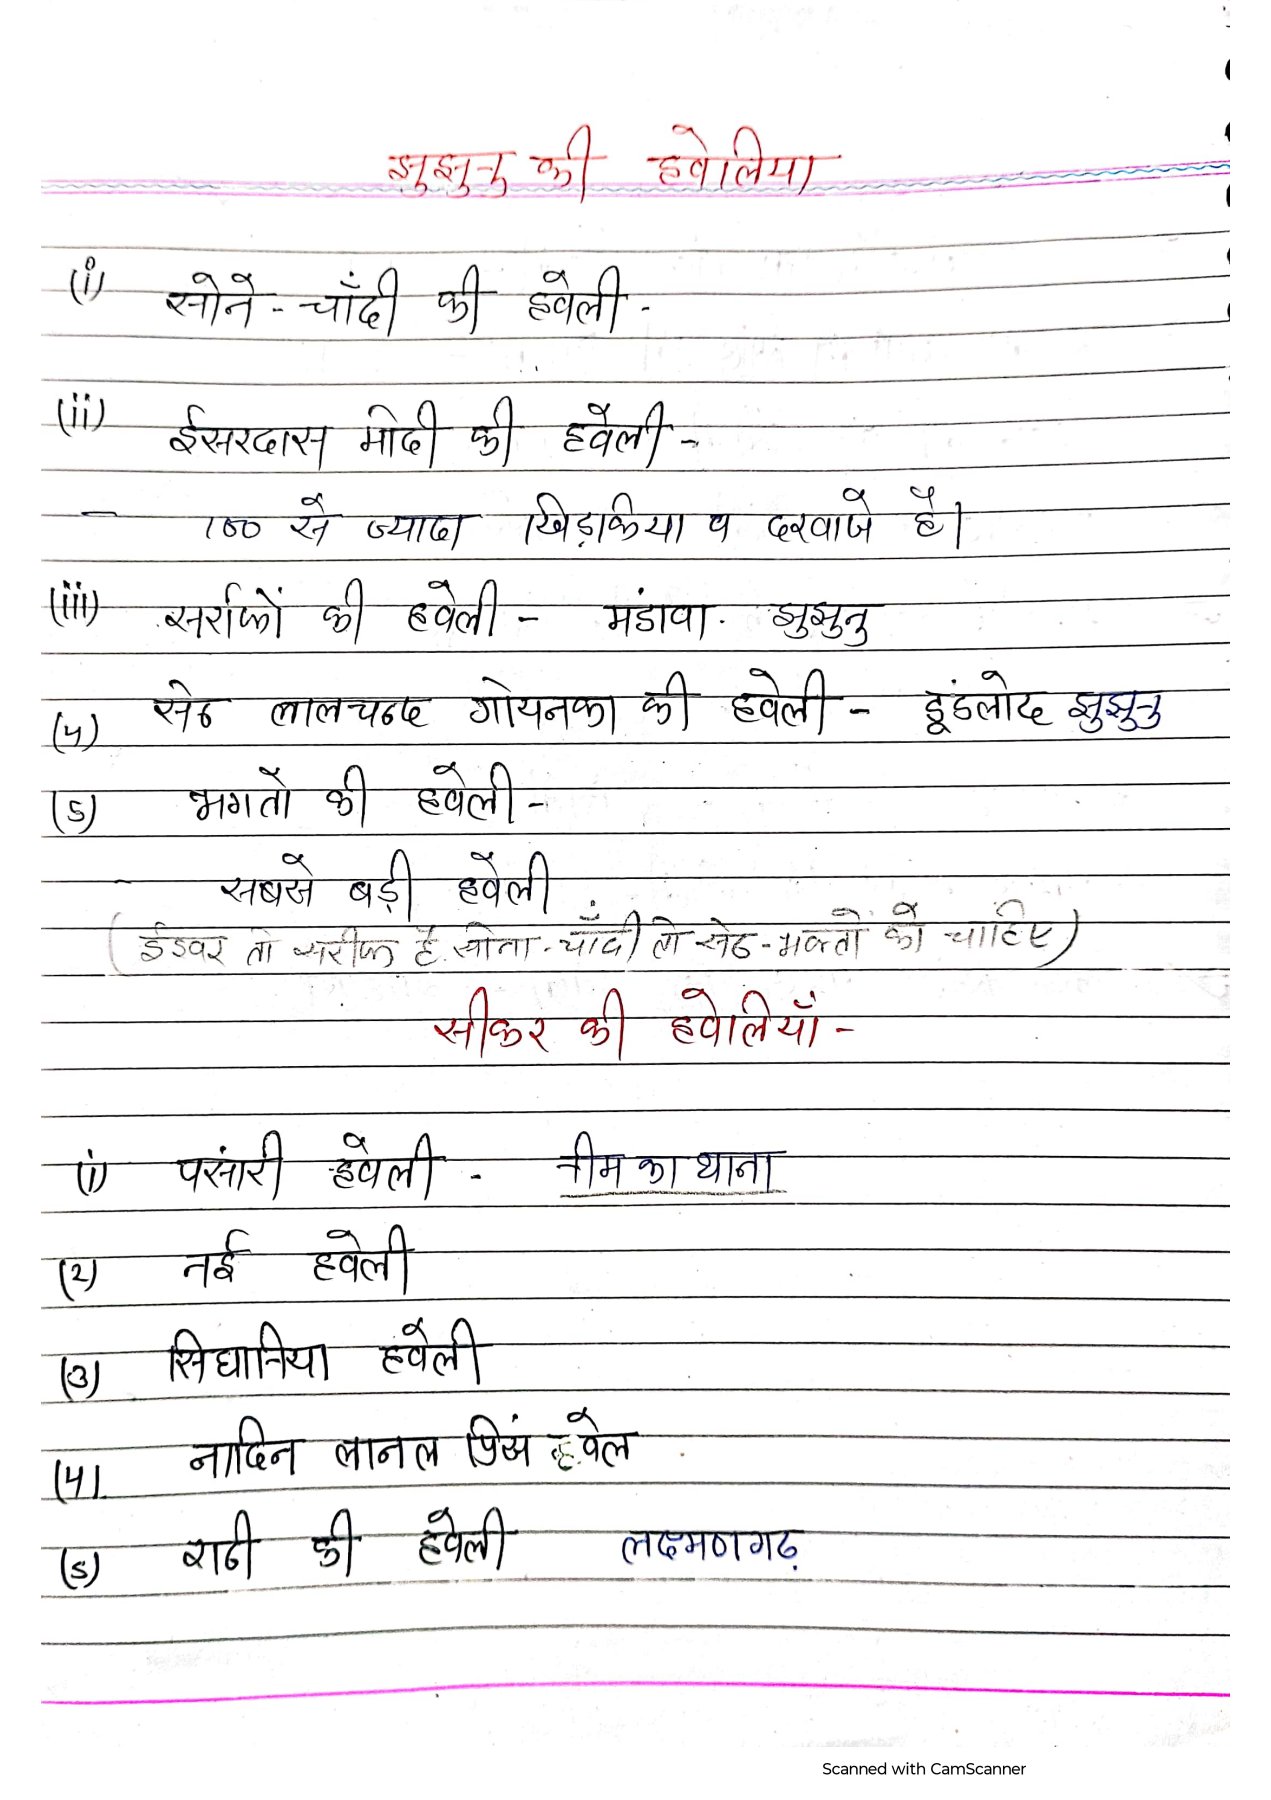 झुझुनु की हवेलिया
(i) सोने - चाँदी की हवेली -
(ii) ईसरदास मोदी की हवेली -
- 100 से ज्यादा खिड़किया व दरवाजे है।
(iii) सर्राफों की हवेली - मंडावा. झुझुनु
(4) सेठ लालचन्द गोयनका की हवेली - डूंडलोद झुझुनु
(5) भगतो की हवेली -
- सबसे बड़ी हवेली
(ईश्वर तो सरीफ है. सोना-चाँदी तो सेठ-भक्तो को चाहिए)
सीकर की हवेलियाँ -
(i) पसांरी हवेली - नीम का थाना
(2) नई हवेली
(3) सिघानिया हवेली
(4). नादिन लानल प्रिसं हवेल
(5) राठी की हवेली लक्ष्मणगढ़
Scanned with CamScanner